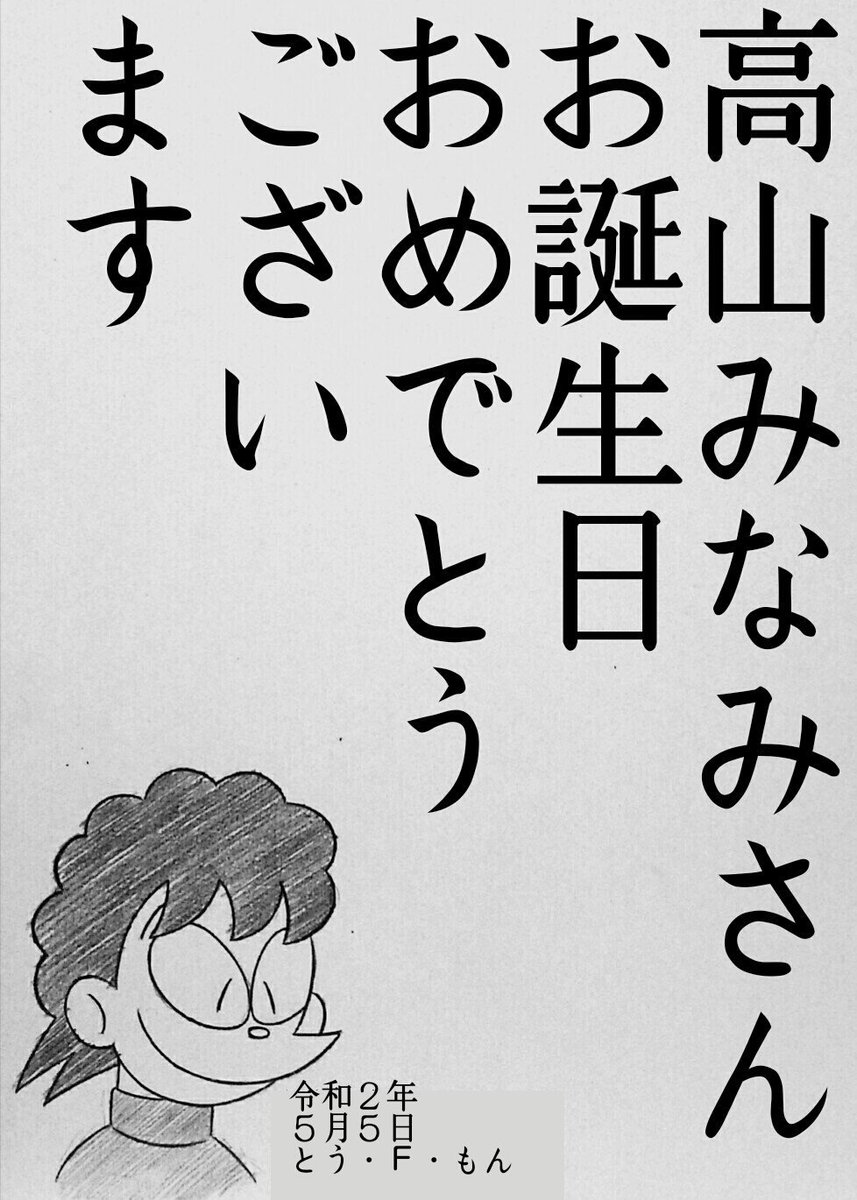 高山みなみさん
お誕生日
おめでとう
ござい
ます
令和２年
５月５日
とう・Ｆ・もん